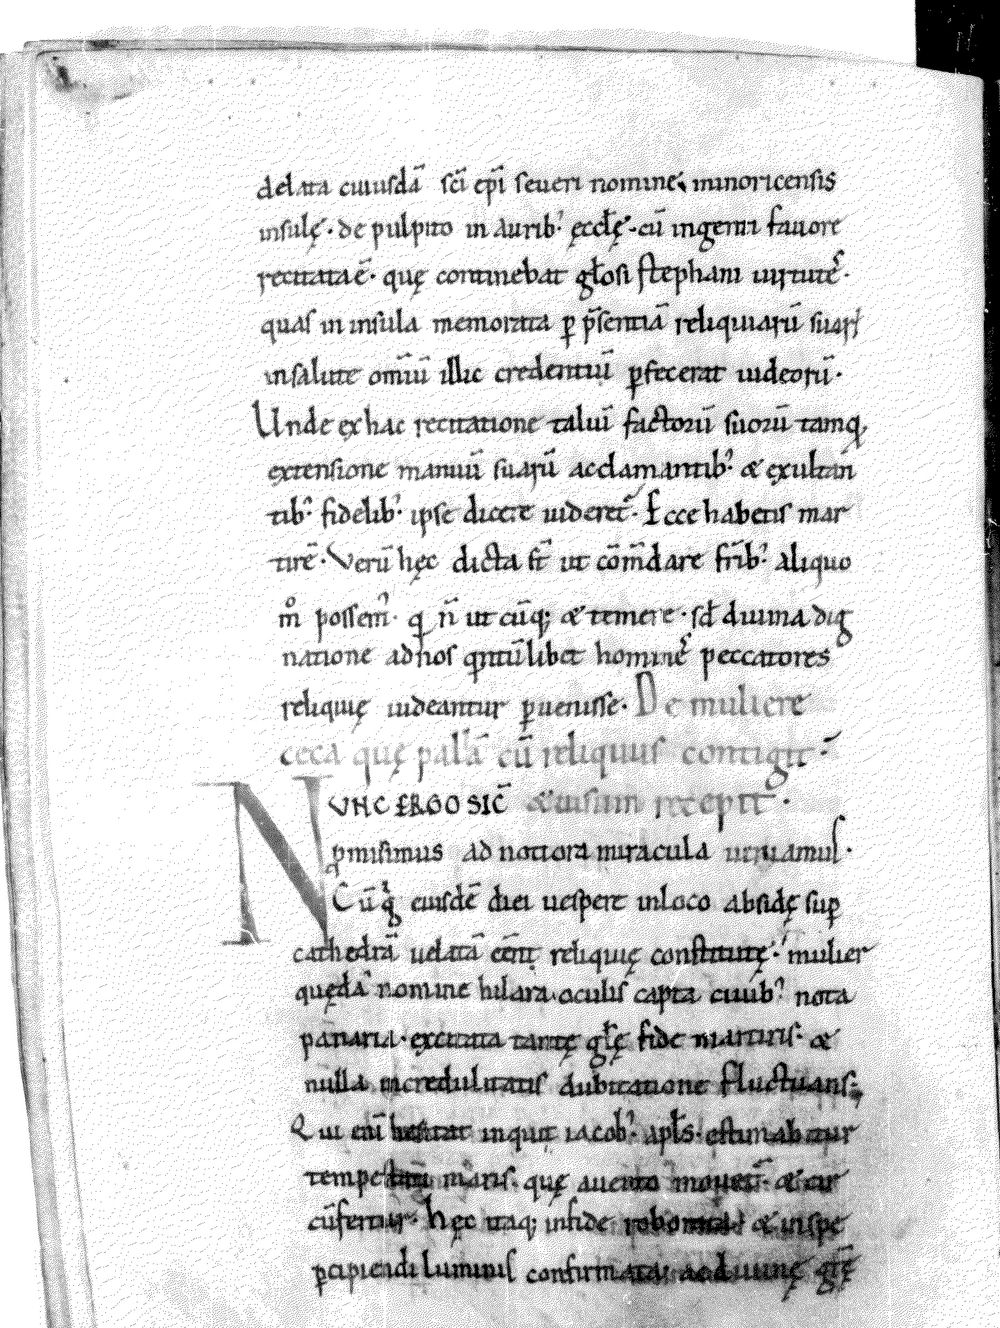 delata cuiusdā scī epī seueri nomine, minoricensis
insulę · de pulpito in aurib; ęccłę · cū ingenti fauore
recitata ē · quę continebat głosi stephani uirtutes ·
quas in insula memorata ꝑ p̄sentiā reliquiarū suarꝝ
in salute om̄iū illic credentiū ꝑfecerat iudeorū ·
Unde ex hac recitatione taliū factorū suorū tamq̨
extensione manuū suarū acclamantib; & exultan
tib; fidelib; ipse dicere uideret᷑ · Ecce habetis mar
tirē · Verū hęc dicta st̄ ut cōm̄dare fr̄ib; aliquo
m̊ possem᷑ · q n̄ ut cūq; & temere · sꝫ diuina dig
natione ad nos qntūlibet homines peccatores
reliquię uideantur ꝑuenisse · De muliere
ceca quę pallā cū reliquiis contigit
VNC ERGO SIC̄ & uisum recepit ·
ꝓmisimus ad notiora miracula ueniamus ·
Cū g̊ eiusdē diei uespere in loco absidę sup
cathedrā uelatā eēnt reliquię constitutę · mulier
quędā nomine hilara oculis capta ciuib; nota
panaria · excitata tantę głę fide martiris · &
nulla incredulitatis dubitatione fluctuans ·
Qui eni hesitat inquit iacob; apłs · estimabitur
tempestati maris · quę a uento mouet᷑ · & cir
cūfertur · hęc itaq; in fide roborata & in spe
ꝑcipiendi luminis confirmata ad diuinę gr̄ę